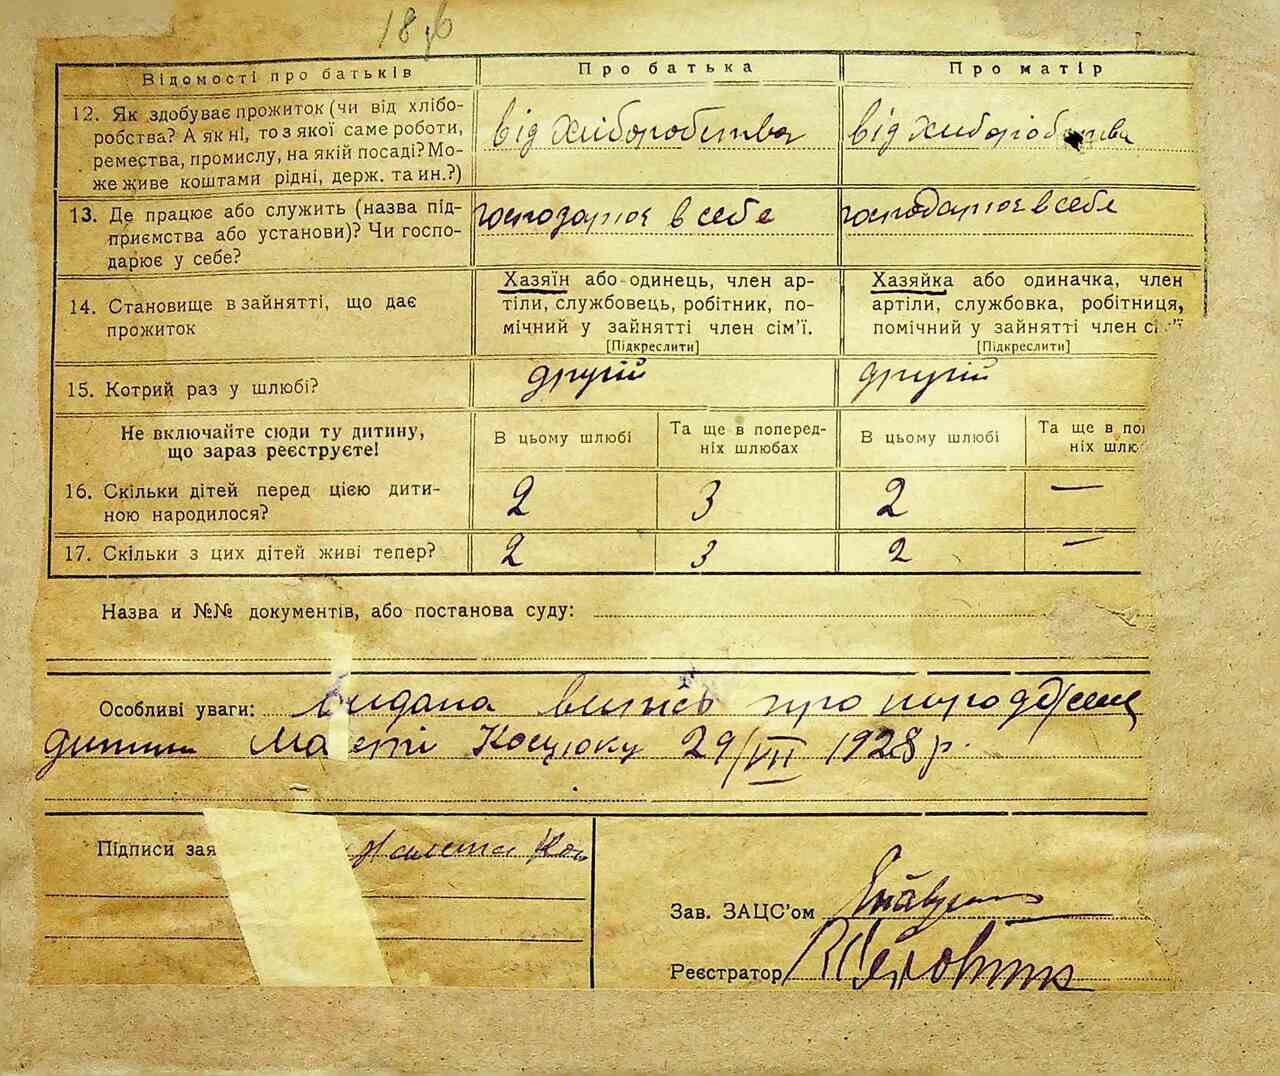 18
Відомості про батьків Про батька Про матір
12. Як здобуває прожиток (чи від хлібо-
робства? А як ні, то з якої саме роботи,
ремества, промислу, на якій посаді? Мо-
же живе коштами рідні, держ. та ин.?)
від хліборобства від хліборобства
13. Де працює або служить (назва під-
приємства або установи)? Чи госпо-
дарює у себе?
господарює в себе господарює в себе
14. Становище в зайнятті, що дає
прожиток
Хазяїн або одинець, член ар-
тіли, службовець, робітник, по-
мічний у зайнятті член сім'ї.
[Підкреслити]
Хазяйка або одиначка, член
артіли, службовка, робітниця,
помічний у зайнятті член сі
[Підкреслити]
15. Котрий раз у шлюбі?
другій другій
Не включайте сюди ту дитину,
що зараз реєструєте!
В цьому шлюбі
Та ще в поперед-
ніх шлюбах
В цьому шлюбі
Та ще в по
ніх шлю
16. Скільки дітей перед цією дити-
ною народилося?
2 3 2 —
17. Скільки з цих дітей живі тепер?
2 3 2 —
Назва и №№ документів, або постанова суду:
Особливі уваги: видана випись про
дитини Костюку 29/VII 1928 р.
Підписи зая
Зав. ЗАЦС'ом
Реєстратор